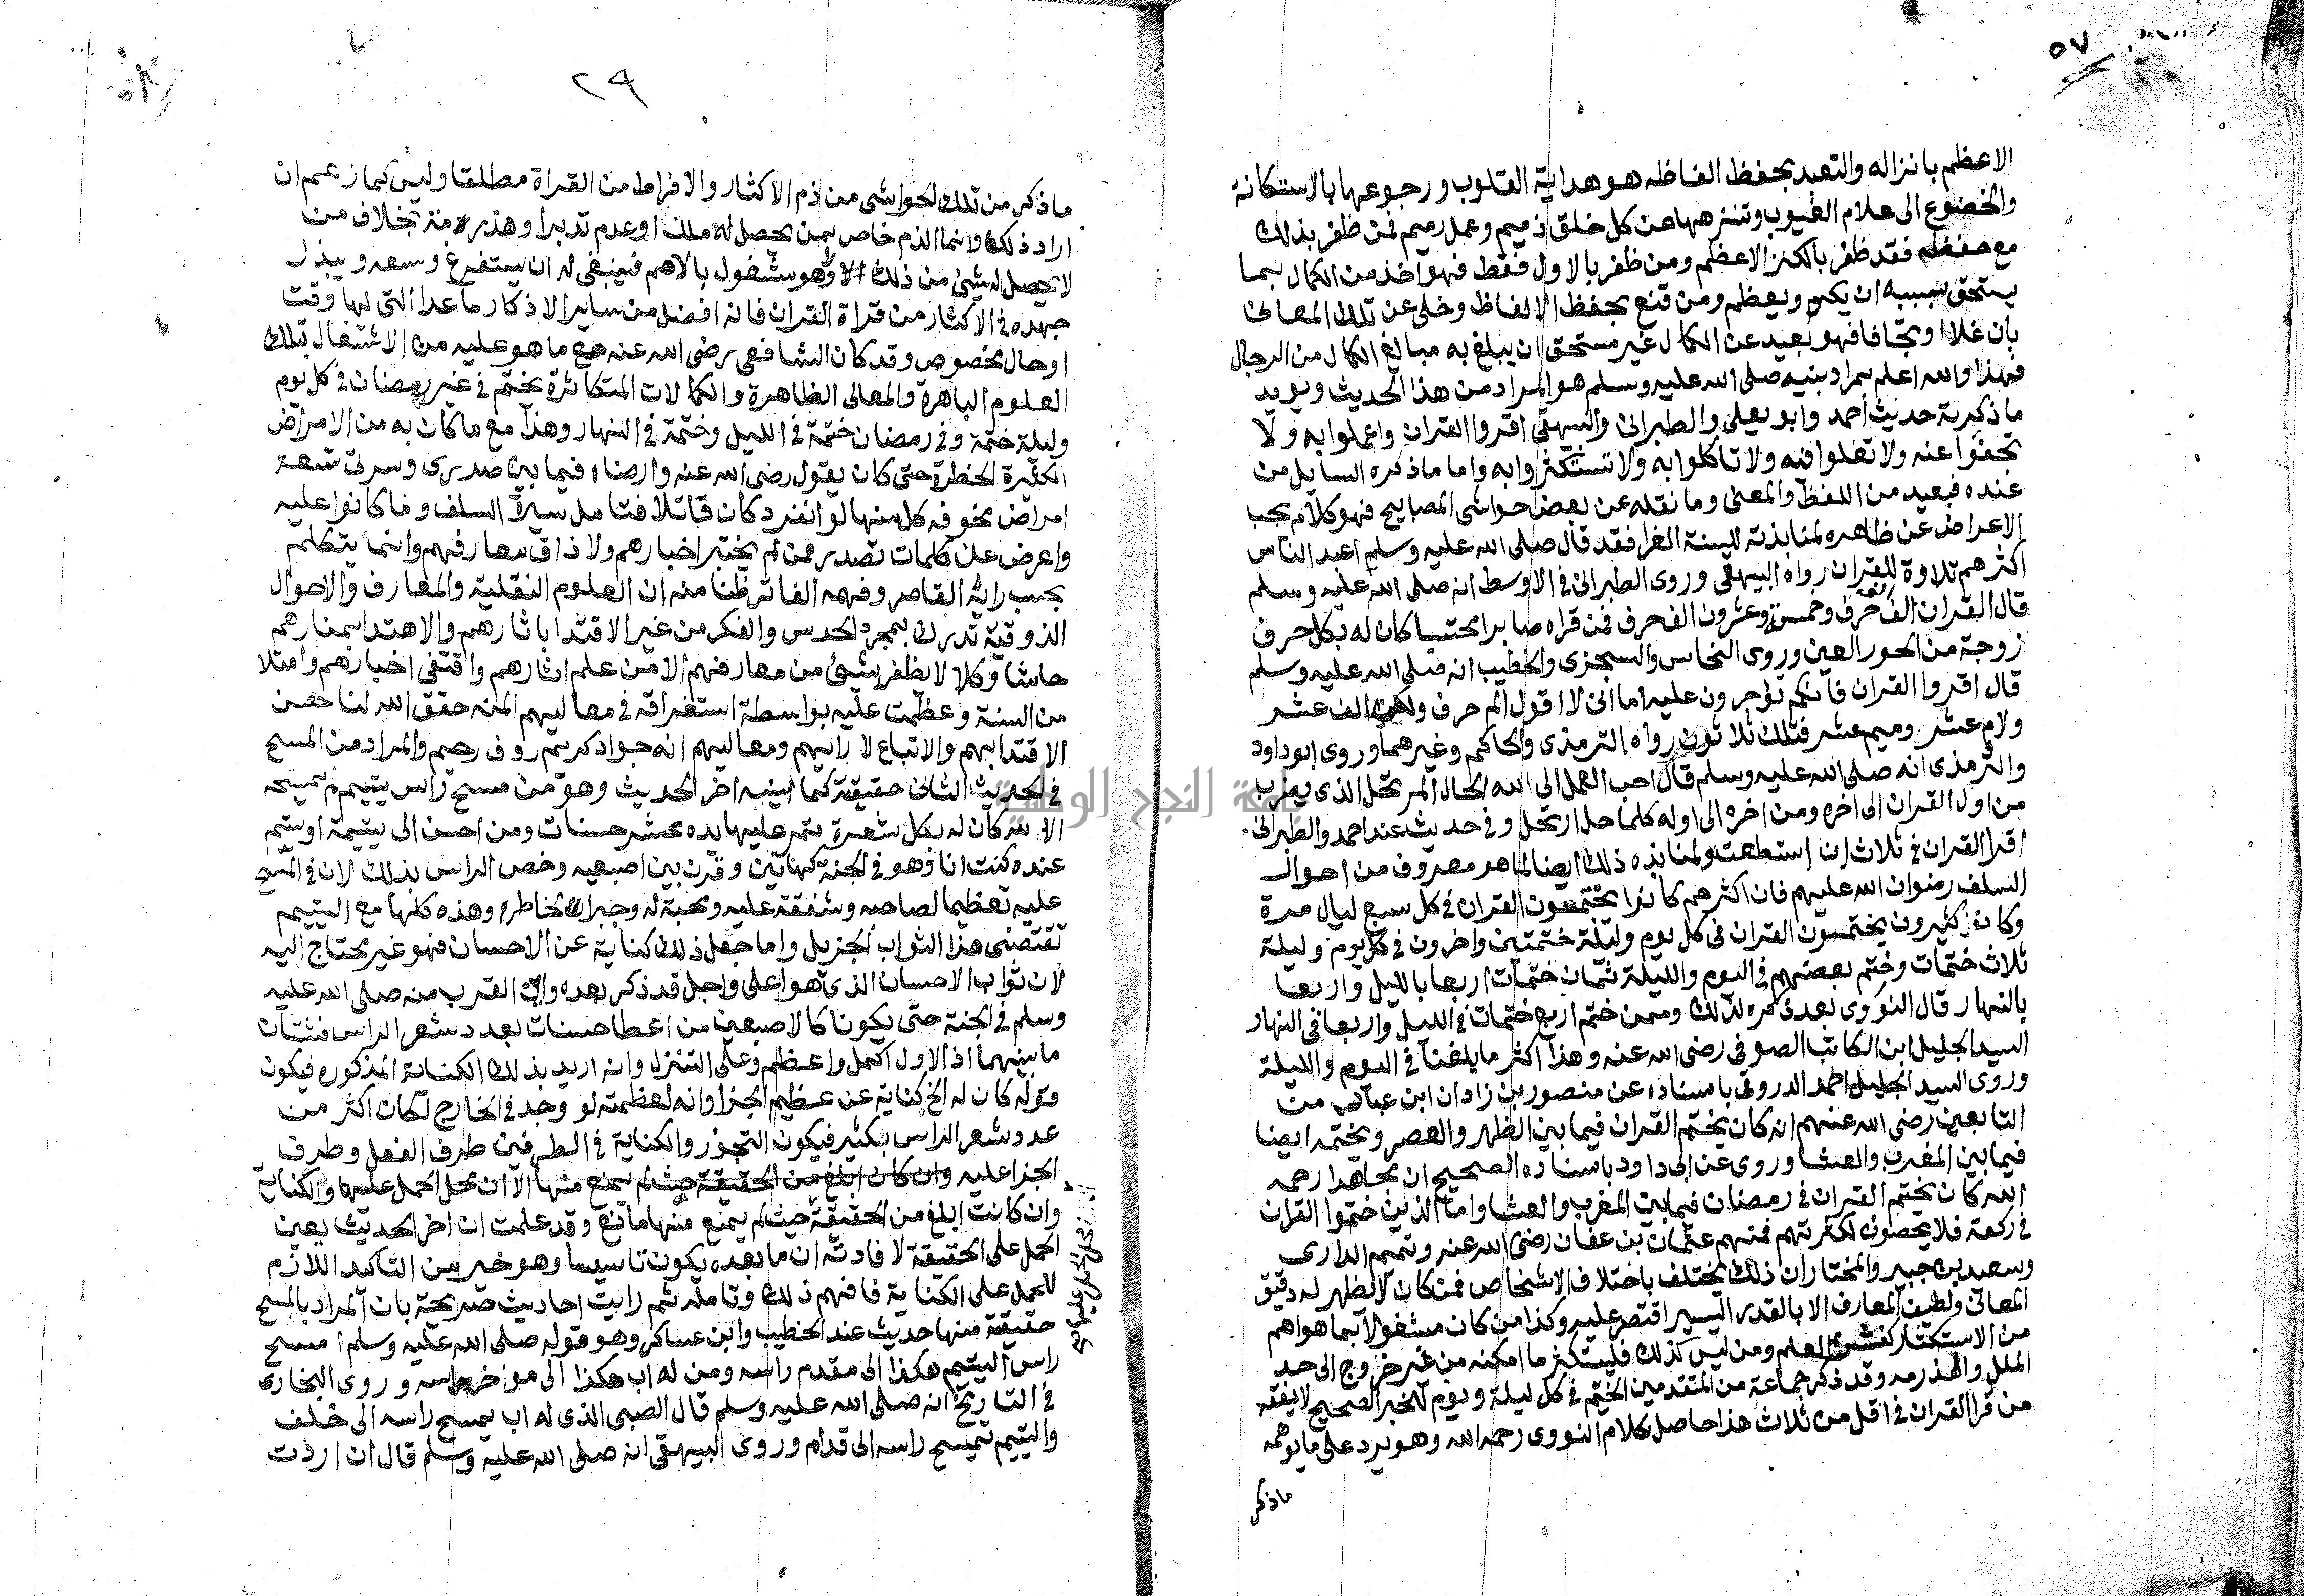 ٥٧
الاعظم بانزاله والتعبد بحفظ الفاظه هو هداية القلوب ورجوعها بالاستكانة
والخضوع الى علام الغيوب وتنزهها عن كل خلق ذميم وعمل رميم فمن ظفر بذلك
مع حفظه فقد ظفر بالكنز الاعظم ومن ظفر بالاول فقط فهو اخذ من الكمال بما
يستحق بسببه ان يكرم ويعظم ومن قنع بحفظ الالفاظ وخلى عن تلك المعانى
بان غلا او تجافا فهو بعيد عن الكمال غير مستحق ان يبلغ به مبالغ الكمال من الرجال
فهذا والله اعلم بمراد نبيه صلى الله عليه وسلم هو المراد من هذا الحديث ويويد
ما ذكرته حديث احمد وابو يعلى والطبرانى والبيهقى اقروا القران واعملوا به ولا
تجفوا عنه ولا تغلوا فيه ولا تاكلوا به ولا تستكثروا به واما ما ذكره السايل من
عنده فبعيد من اللفظ والمعنى وما نقله عن بعض حواشى المصابيح فهو كلام يجب
الاعراض عن ظاهره لمنابذته للسنة الغرا فقد قال صلى الله عليه وسلم اعبد الناس
اكثرهم تلاوة للقران رواه البيهقى وروى الطبرانى فى الاوسط انه صلى الله عليه وسلم
قال القران الف الف حرف وخمسة وعشرون الف حرف فمن قراه صابرا محتسبا كان له بكل حرف
زوجة من الحور العين وروى النحاس والسجزى والخطيب انه صلى الله عليه وسلم
قال اقروا القران فانكم توجرون عليه اما انى لا اقول الم حرف ولكن الف عشر
ولام عشر وميم عشر فتلك ثلاثون رواه الترمذى والحاكم وغيرهما وروى ابو داود
والترمذى انه صلى الله عليه وسلم قال احب العمل الى الله الحال المرتحل الذى يضرب
من اول القران الى اخره ومن اخره الى اوله كلما حل ارتحل وفى حديث عند احمد والطبرانى
اقرا القران فى ثلاث ان استطعت ولمنابذه ذلك ايضا لما هو معروف من احوال
السلف رضوان الله عليهم فان اكثرهم كانوا يختمون القران فى كل سبع ليال مرة
وكانوا كثيرون يختمون القران فى كل يوم وليلة ختمتين واخرون فى كل يوم وليلة
ثلاث ختمات وختم بعضهم فى اليوم والليلة ثمان ختمات اربعا بالليل واربعا
بالنهار قال النووى بعد ذكره لذلك وممن ختم اربع ختمات فى الليل واربعا فى النهار
السيد الجليل ابن الكاتب الصوفى رضى الله عنه وهذا اكثر ما بلغنا فى اليوم والليلة
وروى السيد الجليل احمد الدروقى باسناده عن منصور بن زادان ابن عباد من
التابعين رضى الله عنهم انه كان يختم القران فيما بين الظهر والعصر ويختمه ايضا
فيما بين المغرب والعشا وروى عن ابى داود باسناده الصحيح ان مجاهدا رحمه
الله كان يختم القران فى رمضان فيما بين المغرب والعشا واما الذين ختموا القران
فى ركعة فلا يحصون لكثرتهم فمنهم عثمان بن عفان رضى الله عنه وتميم الدارى
وسعيد بن جبير والمختار ان ذلك يختلف باختلاف الاشخاص فمن كان لا يظهر له دقيق
المعانى ولطيف المعارف الا بالقدر اليسير اقتصر عليه وكذا من كان مشغولا بما هو اهم
من الاستكثار كنشر العلم ومن ليس كذلك فليستكثر ما امكنه من غير خروج الى حد
الملل والهذرمه وقد ذكر جماعة من المتقدمين الختم فى كل ليلة ويوم للخبر الصحيح لا يفقه
من قرا القران فى اقل من ثلاث هذا حاصل كلام النووى رحمه الله وهو يرد على ما يوهمه
ما ذكر
٢٩
ما ذكر من تلك الحواشى من ذم الاكثار والافراط من القراة مطلقا وليس كما زعم ان
اراد ذلك وانما الذم خاص بمن يحصل له ملل او عدم تدبر او هذرمة بخلاف من
لا يحصل له شئ من ذلك ولا هو مشغول بالاهم فينبغى له ان يستفرغ وسعه ويبذل
جهده فى الاكثار من قراة القران فانه افضل من ساير الاذكار ما عدا التى لها وقت
او حال مخصوص وقد كان الشافعى رضى الله عنه مع ما هو عليه من الاشتغال بتلك
العلوم الباهرة والمعالى الظاهرة والكمالات المتكاثرة يختم فى غير رمضان فى كل يوم
وليلة ختمة وفى رمضان ختمة فى الليل وختمة فى النهار وهذا مع ما كان به من الامراض
الكثيرة الخطرة حتى كان يقول رضى الله عنه وارضاه فيما بين صدرى وسرتى تسعة
امراض مخوفه كل منها لو انفرد كان قاتلا فتامل سيرة السلف وما كانوا عليه
واعرض عن كلمات تصدر ممن لم يختبر اخبارهم ولا ذاق معارفهم وانما يتكلم
بحسب رايه القاصر وفهمه الفاتر ظنا منه ان العلوم النقلية والمعارف والاحوال
الذوقية تدرك بمجرد الحدس والفكر من غير الاقتدا باثارهم والاهتدا بمنارهم
حاشا وكلا لا يظفر بشئ من معارفهم الا من علم اثارهم واقتفى اخبارهم وامتلا
من السنة وعظمت عليه بواسطة استغراقه فى معاليهم المنه حقق الله لنا حسن
الاقتدا بهم والاتباع لارايهم ومعاليهم انه جواد كريم روف رحيم والمراد من المسح
فى الحديث الثانى حقيقة كما بينه اخر الحديث وهو من مسح راس يتيم لم يمسحه
الا لله كان له بكل شعرة تمر عليها يده عشر حسنات ومن احسن الى يتيمة او يتيم
عنده كنت انا وهو فى الجنة كهاتين وقرن بين اصبعيه وخص الراس بذلك لان فى المسح
عليه تعظيما لصاحبه وشفقة عليه ومحبة له وجبرا لخاطره وهذه كلها مع اليتيم
تقتضى هذا الثواب الجزيل واما جعل ذلك كناية عن الاحسان فهو غير محتاج اليه
لان ثواب الاحسان الذى هو اعلى واجل قد ذكر بعده القرب منه صلى الله عليه
وسلم فى الجنة حتى يكونا كالاصبعين من اعطا حسنات بعدد شعر الراس فشتان
ما بينهما اذ الاول اكمل واعظم وعلى التنزل وانه اريد بذلك الكناية المذكوره فيكون
قوله كان له الخ كناية عن عظيم الجزا وانه لعظمته لو وجد فى الخارج لكان اكثر من
عدد شعر الراس بكثير فيكون التجوز والكناية فى الطرفين طرف الفعل وطرف
الجزا عليه وان كان ابلغ من الحقيقة حيث لم يمنع منها الا ان محل الحمل عليها والكناية
وان كانت ابلغ من الحقيقة حيث لم يمنع منها مانع وقد علمت ان اخر الحديث يعين
الحمل على الحقيقة لافادته ان ما بعده يكون تاسيسا وهو خير من التاكيد اللازم
للحمل على الكناية فافهم ذلك وتامله ثم رايت احاديث صريحة بان المراد بالمسح
حقيقة منها حديث عند الخطيب وابن عساكر وهو قوله صلى الله عليه وسلم امسح
راس اليتيم هكذا الى مقدم راسه ومن له اب هكذا الى موخر راسه وروى البخارى
فى التاريخ انه صلى الله عليه وسلم قال الصبى الذى له اب يمسح راسه الى خلف
واليتيم يمسح راسه الى قدام وروى البيهقى انه صلى الله عليه وسلم قال ان اردت